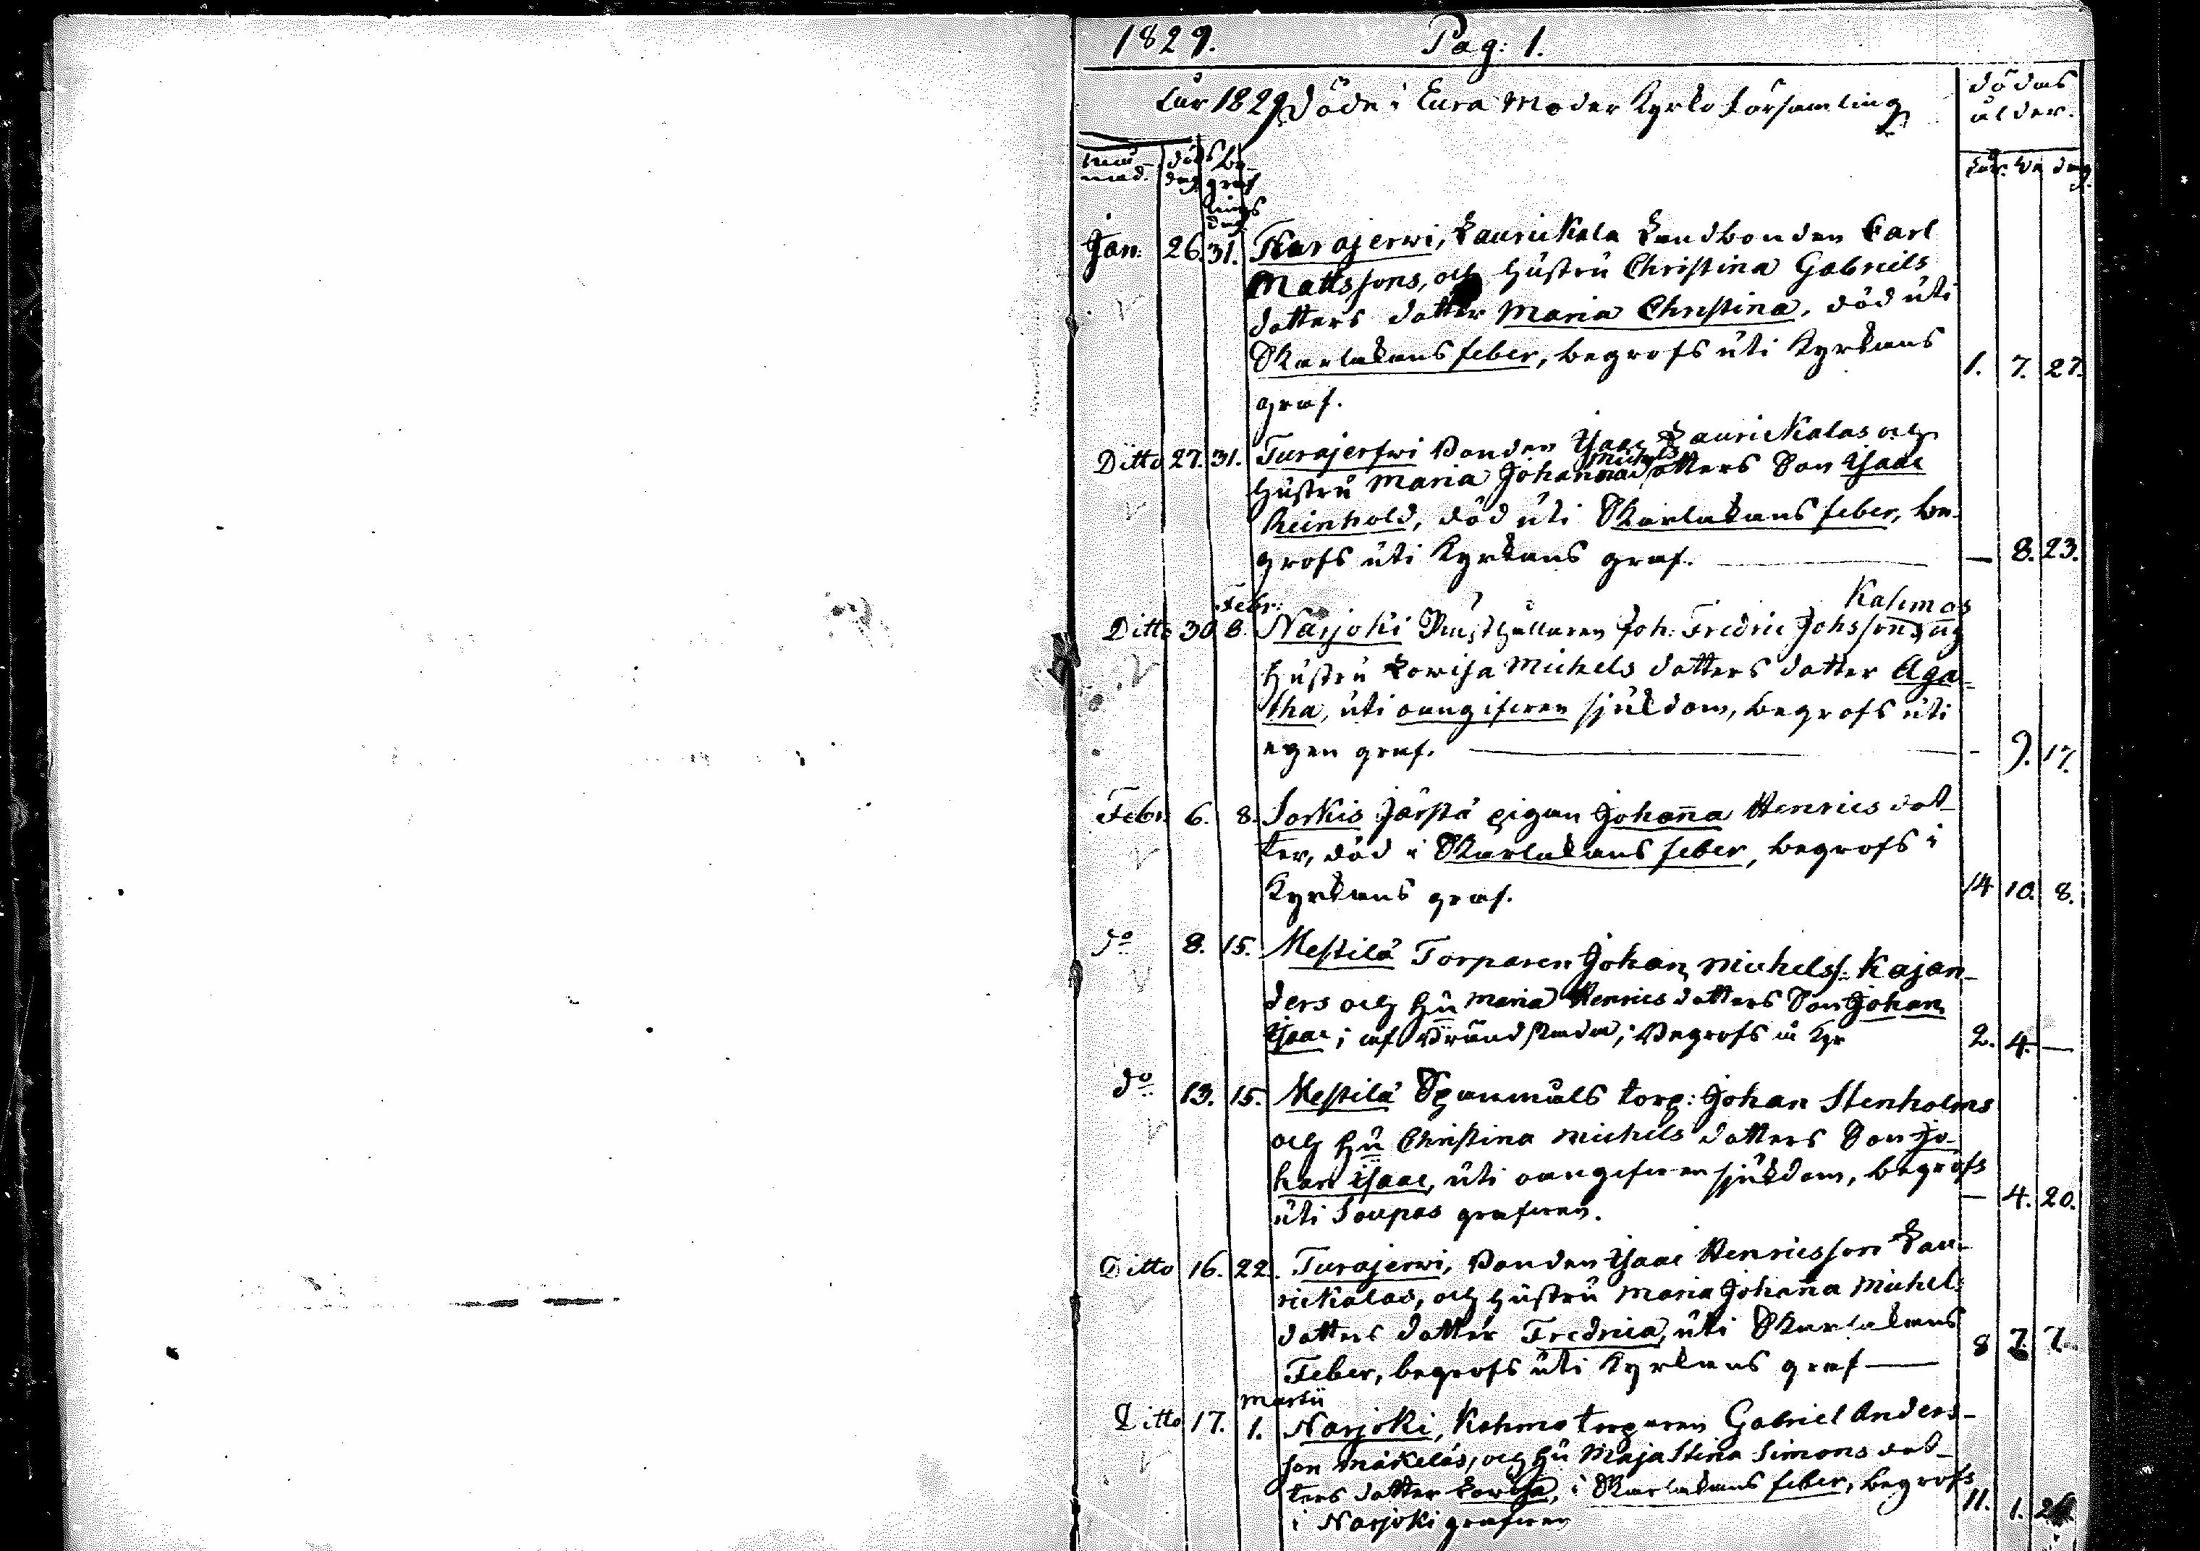 1829. Pag: 1.
År 1829 Döde i Eura Moder Kyrko Församling
dödas ålder.
må-nad. döds dag be-graf nings dag
år. m dag
Jan. 26. 31. Turajerwi, Laurikala Landbonden Carl
Mattssons, och hustru Christina Gabriels
dotters dotter Maria Christina, död uti
Skarlakansfeber, begrofs uti Kyrkans 1. 7. 27.
graf.
Ditto 27. 31. Turajerfwi Bonden Isaac Laurikalas och
Michels
hustru Maria Johanna dotters Son Isaac
Reinhold, död uti Skarlakans feber, be-
grofs uti Kyrkans graf. — 8. 23.
Febr: Kahmos
Ditto 30. 8. Narjoki Rusthållaren Joh: Fredric Johssons och
hustru Lowisa Michels dotters dotter Aga-
tha, uti oangifwen sjukdom, begrofs uti
egen graf. - 9. 17.
Febr. 6. 8. Sorkis Järstä pigan Johanna Henrics dot-
ter, död i Skarlakans feber, begrofs i
Kyrkans graf. 14 10. 8.
do 8. 15. Mestilä Torparen Johan Michelss: Kajan-
ders och hu Maria Henrics dotters Son Johan
Isaac; af Brändskada; Begrofs å Kyr 2. 4. —
do 13. 15. Mestilä Spanmåls torp: Johan Stenholms
och hu Christina Michels dotters Son Jo-
han Isaac, uti oangifwen sjukdom, begrofs
uti Soupas grafwen. — 4. 20.
Ditto 16. 22. Turajerwi, Bonden Isaac Henricsson Lau-
rickalas, och hustru Maria Johanna Michels
dotters dotter Fredrica, uti Skarlakans
Feber, begrofs uti Kyrkans graf — 8 7. 7.
Martii
Ditto 17. 1. Narjoki, Kahmo torparen Gabriel Anders-
son Mäkeläs, och hu Maja Stina Simons dot-
ters dotter Lowisa, i Skarlakans feber, begrofs
i Narjoki grafwen 11. 1.